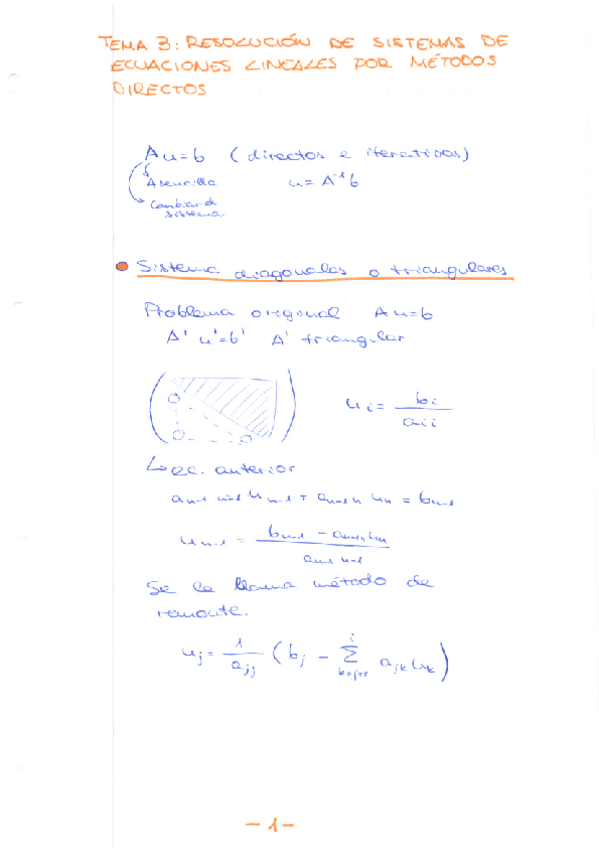 TEMA 3: RESOLUCIÓN DE SISTEMAS DE
ECUACIONES LINEALES POR MÉTODOS
DIRECTOS
Au=b (directos e iterativos)
A sencilla u= A⁻¹b
Cambiar de
sistema
Sistema diagonales o triangulares
Problema original Au=b
A' u'=b' A' triangular
u_i = b_i / a_ii
↳ ec. anterior
a_{n-1 n-1} u_{n-1} + a_{n-1 n} u_n = b_{n-1}
u_{n-1} = (b_{n-1} - a_{n-1 n} u_n) / a_{n-1 n-1}
Se le llama método de
remonte.
u_j = 1/a_jj (b_j - Σ_{k=j+1}^{i} a_jk u_k)
- 1 -